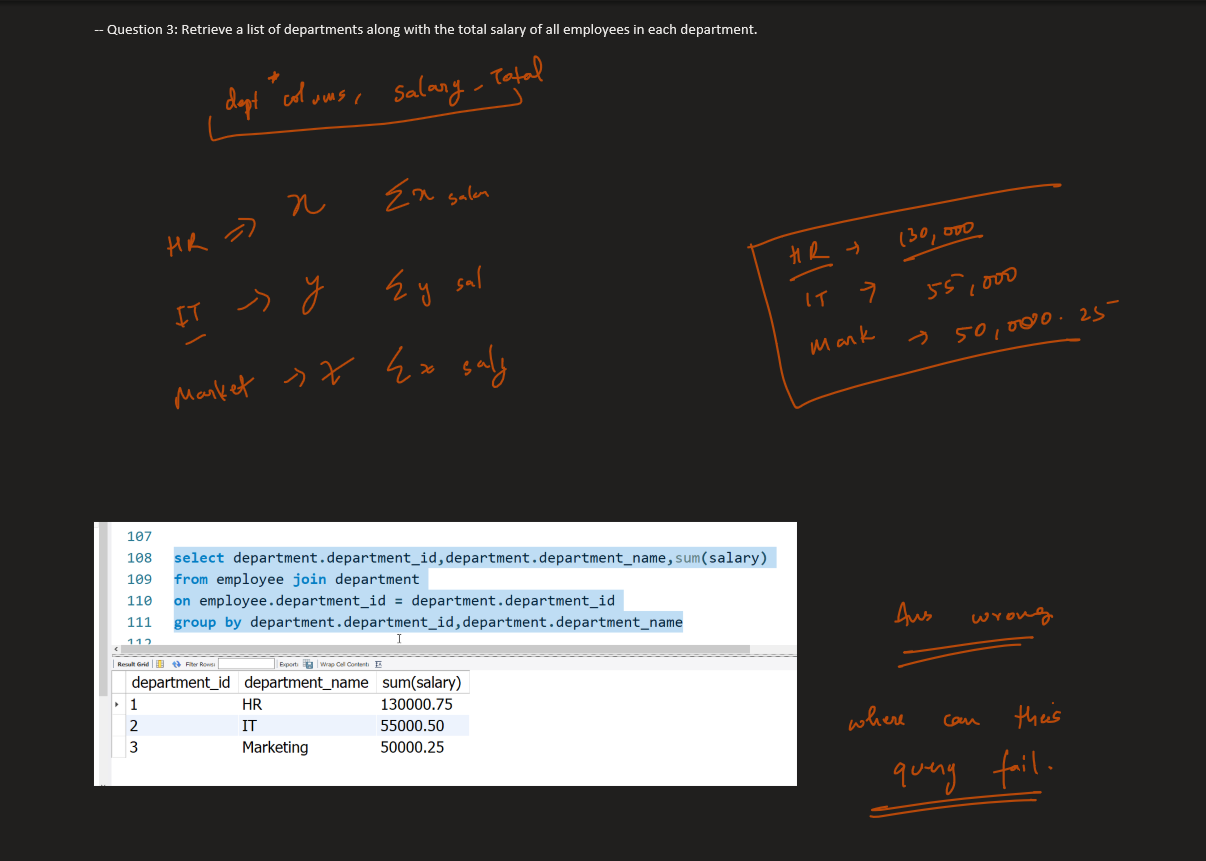 -- Question 3: Retrieve a list of departments along with the total salary of all employees in each department.
dept * colums, salary - Total
HR => x Σx salary
IT -> y Σy sal
Market -> z Σz saly
HR -> 130,000
IT -> 55,000
Mark -> 50,000.25
107
108 select department.department_id,department.department_name,sum(salary)
109 from employee join department
110 on employee.department_id = department.department_id
111 group by department.department_id,department.department_name
112
Result Grid Filter Rows: Export: Wrap Cell Content:
department_id department_name sum(salary)
1 HR 130000.75
2 IT 55000.50
3 Marketing 50000.25
Ans wrong
where can this
query fail.